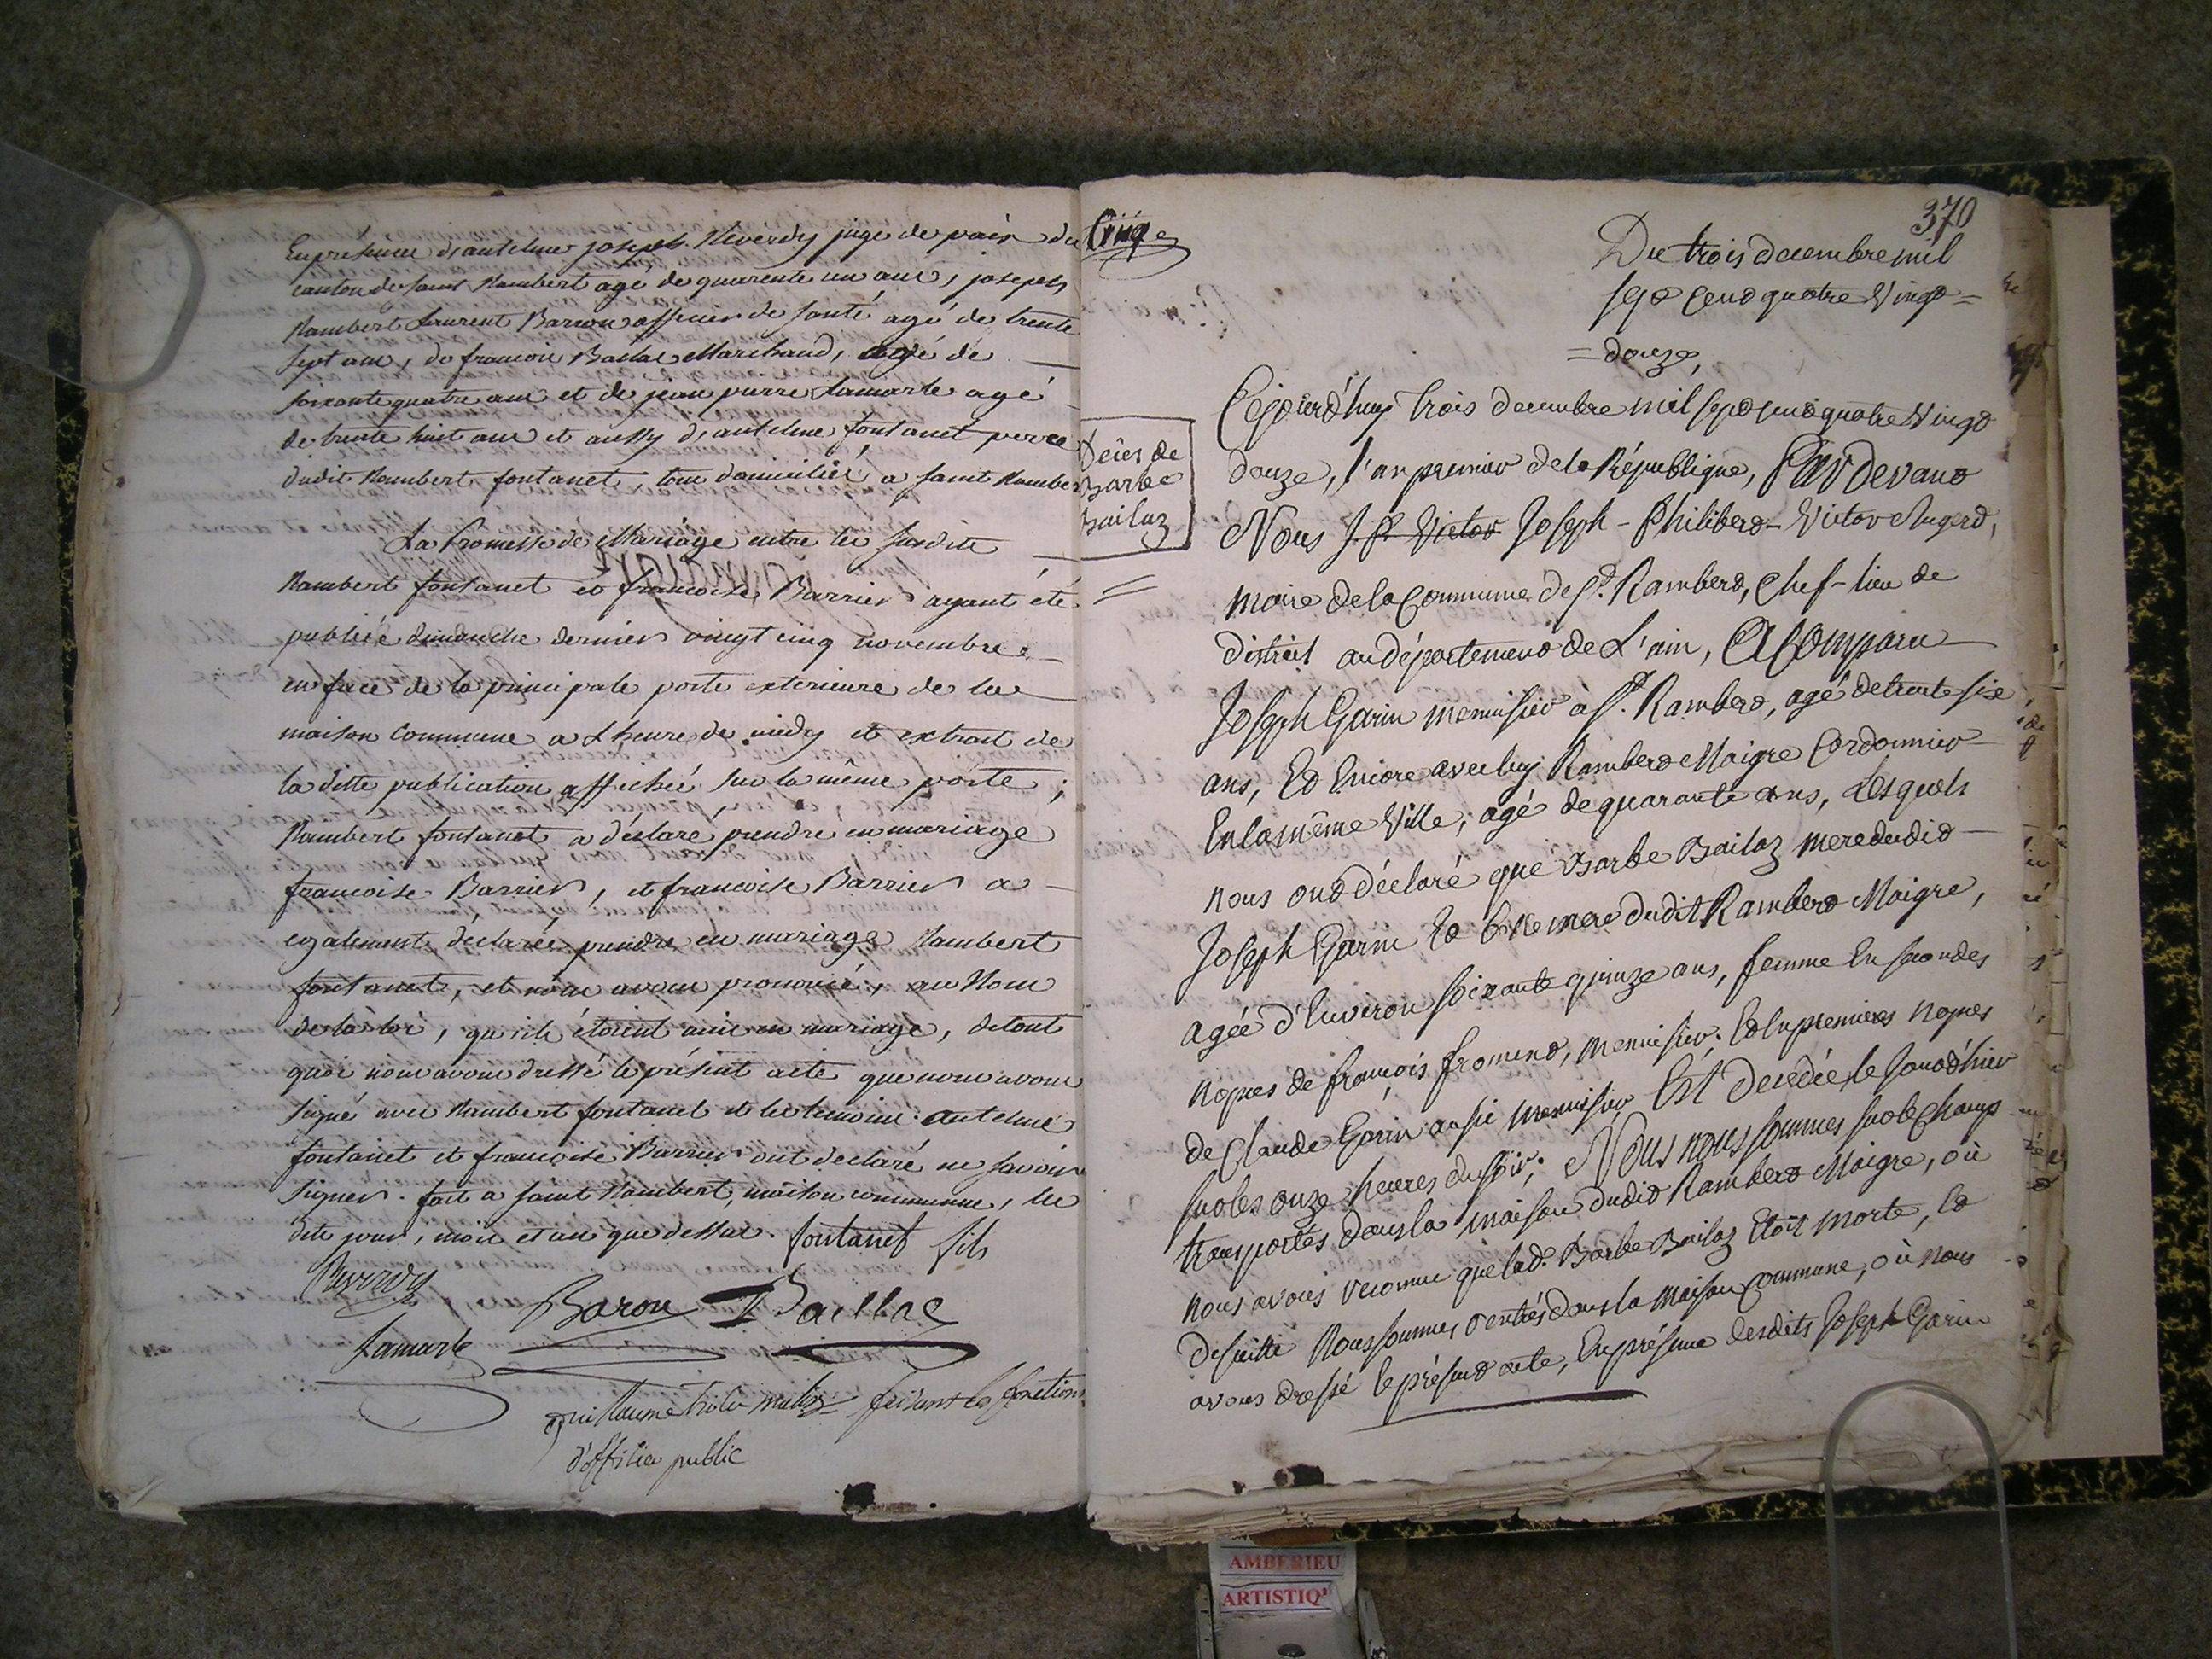 En présence d'antelme joseph Reverdy juge de paix du
canton de saint Rambert agé de quarente un ans, joseph
Rambert Laurent Baron officier de santé agé de trente
sept ans, de francois Baillac Marchand, agé de
soixante quatre ans et de jean pierre Lamarle agé
de trente huit ans et aussy d'antelme fontanet perre
dudit Rambert fontanet, tous domiciliés a saint Rambert
La Promesse de Mariage entre les susdits
Rambert fontanet et francoise Barrier ayant été
publiée dimanche dernier vingt cinq novembre
en face de la principale porte exterieure de la
maison commune a Lheure de midy et extrait de
la ditte publication affiché sur la même porte ;
Rambert fontanet a déclaré prendre en mariage
francoise Barrier, et francoise Barrier a
egalement déclarée prendre en mariage Rambert
fontanet, et nous avons prononcé, au Nom
de la loi, qu'ils étoient unis en mariage, de tout
quoi nous avons dressé le présent acte que nous avons
signé avec Rambert fontanet et les temoins. antelme
fontanet et francoise Barrier ont declaré ne savoir
signer. fait a saint Rambert, maison commune, les
dits jour, mois et an que dessus. fontanet fils
Reverdy
Baron Baillac
Lamarle
guillaume faisant les fonctions
d'officier public
Cinq
370
Du trois decembre mil
sept cent quatre Vingt =
= douze,
Décès de
Barbe
Bailaz
Cejourd'huy trois decembre mil sept cent quatre Vingt
douze, l'an premier de la République, Par devant
Nous J. P. Victor Joseph - Philibert - Victor Augerd,
maire de la Commune de St. Rambert, Chef-lieu de
district au département de L'ain, A Comparu
Joseph Garin menuisier à St. Rambert, agé de trente six
ans, Et Encore avec luy Rambert Maigre Cordonnier
En la même Ville, agé de quarante ans, Lesquels
nous ont déclaré que Barbe Bailaz mere dudit
Joseph Garin Et mere dudit Rambert Maigre,
agée d'Environ soixante quinze ans, femme En secondes
nopces de françois froment, menuisier, Et En premieres nopces
de Claude Garin aussi menuisier Est Decedée, le jour d'hier
sur les onze heures du soir; Nous nous sommes sur le champ
transportés dans la maison dudit Rambert Maigre, où
nous avons reconnu que lad. Barbe Bailaz Etoit morte, Et
de suitte Nous sommes rentrés dans la Maison Commune, où nous
avons dressé le présent acte, En présence desdits Joseph Garin
AMBERIEU
ARTISTIQ